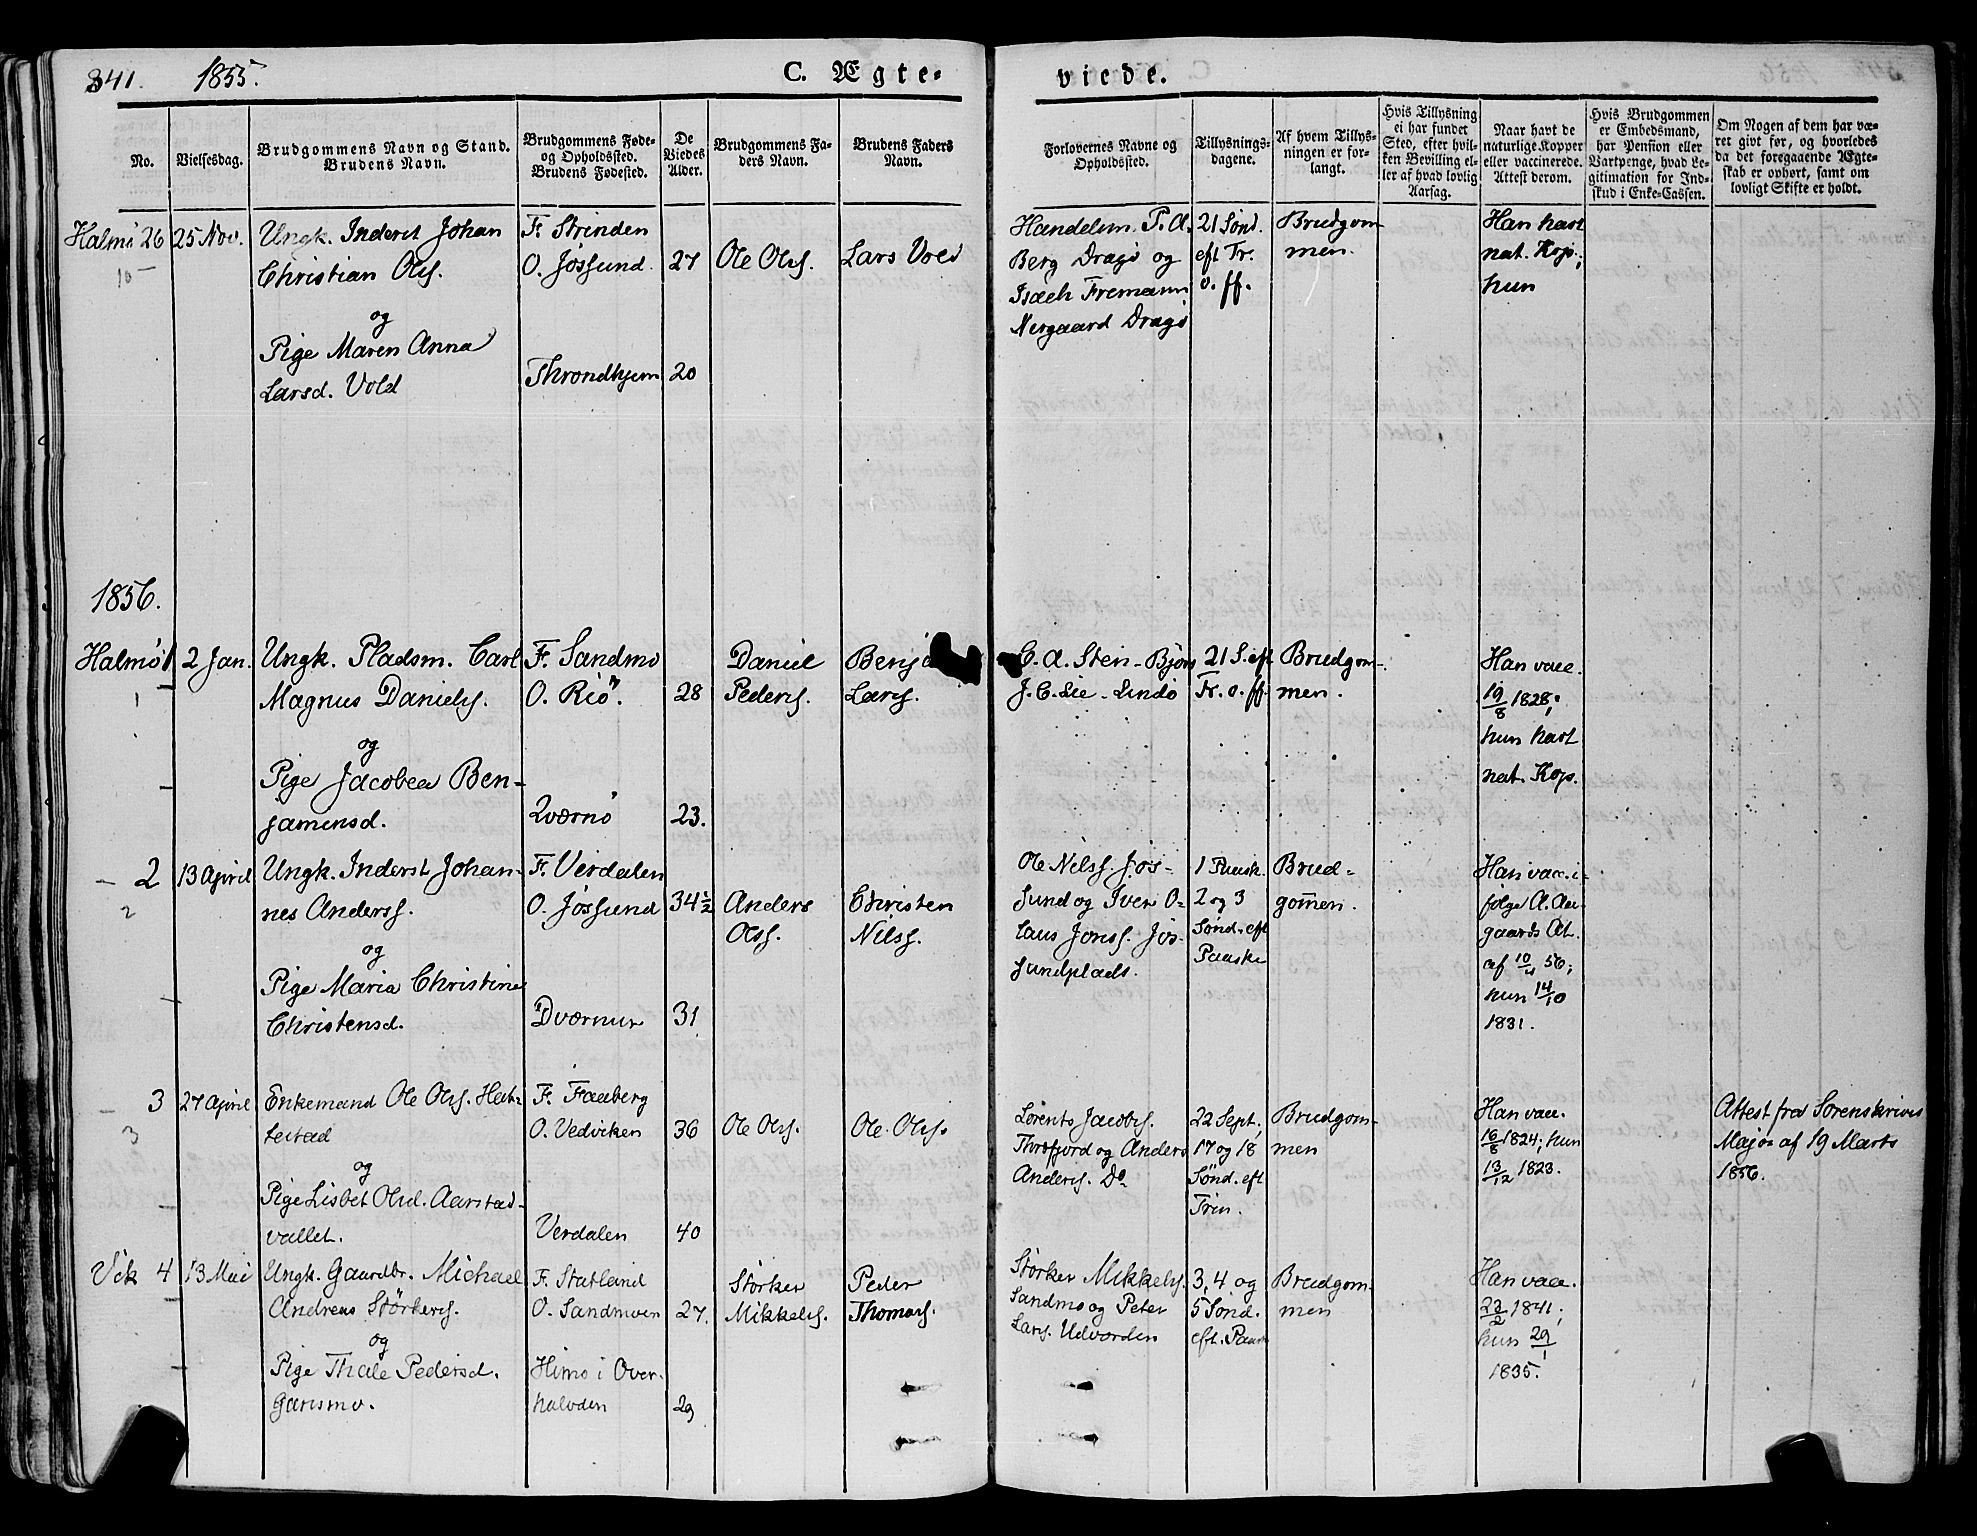 341. 1855. C. Ægte-
viede.
No.
Vielsesdag.
Brudgommens Navn og Stand.
Brudens Navn.
Brudgommens Føde-
og Opholdssted.
Brudens Fødested.
De
Viedes
Alder.
Brudgommens Fa-
ders Navn.
Brudens Faders
Navn.
Forlovernes Navne og
Opholdssted.
Tillysnings-
dagene.
Af hvem Tillys-
ningen er for-
langt.
Hvis Tillysning
ei har fundet
Sted, efter hvil-
ken Bevilling el-
ler af hvad lovlig
Aarsag.
Naar havt de
naturlige Kopper
eller vaccinerede.
Attest derom.
Hvis Brudgommen
er Embedsmand,
har Pension eller
Vartpenge, hvad Le-
gitimation for Ind-
skud i Enke-Cassen.
Om Nogen af dem har væ-
ret givt før, og hvorledes
da det foregaaende Ægte-
skab er ophørt, samt om
lovligt Skifte er holdt.
Halmø 26
10
25 Nov.
Ungk. Inderst Johan
Christian Ols.
og
Pige Maren Anna
Larsd. Vold
F. Strinden
O. Jøssund.
Throndhjem
27
20
Ole Ols.
Lars Vold
Handelsm. P. A.
Berg Dragø og
Isach Fremann
Nergaard Dragø
21 Sønd.
eft Tr.
o. ff.
Brudgom
men.
Han havt
nat. Kop.;
hun
1856.
Halmø 1
1
2 Jan.
Ungk. Pladsm. Carl
Magnus Daniels.
og
Pige Jacobea Ben-
jaminsd.
F. Sandmo
O. Riø.
Qværnø
28
23.
Daniel
Peders.
Lars.
C. A. Sten - Bjørø
J. C. Lie - Lindø
21 S. eft
Tr. o. ff.
Brudgom-
men.
Han vacc.
19/8 1828;
hun havt
nat. Kop.
2
2
13 April
Ungk. Inderst Johan-
nes Anderss.
og
Pige Maria Christine
Christensd.
F. Verdalen
O. Jøssund
Dværnur
34½
31
Anders
Olss.
Christen
Nilss.
Ole Nilss. Jøs-
sund og Iver O-
laus Jonss. Jøs-
sundplads.
1 Paask.
2 og 3
Sønd. eft
Paaske
Brud-
gomen.
Han vacc. i-
følge A. Aar-
gaards At.
af 10/4 56;
hun 14/10
1831.
3
3
27 April
Enkemand Ole Ols. Hat-
testad
og
Pige Lisbet Olsd. Aarstad-
vallet.
F. Faaberg
O. Vedviken
Verdalen
36
40
Ole Ols.
Ole Ols.
Lorents Jacobs.
Throfjord og Anders
Anders. Do.
22 Sept.,
17 og 18
Sønd. eft
Trin.
Brudgom-
men
Han vacc.
16/8 1824; hun
13/12 1823.
Attest fra Sorenskriver
Major af 19 Marts
1856.
Vik 4
13 Mai
Ungk. Gaardbr. Michael
Andreas Størkers.
og
Pige Thale Pedersd.
Garismo.
F. Statland
O. Sandmoen
Himo i Over-
halvden
27.
29
Størker
Mikkels.
Peder
Thomas.
Størker Mikkels.
Sandmo og Peter
Lars. Udvorden
3, 4 og
5 Sønd.
eft. Paask
Brudgom-
men
Han vacc.
23/2 1841;
hun 29/1
1835.